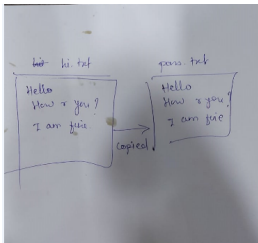 hi.txt
Hello
How r you?
I am fine
Copied
para.txt
Hello
How r you?
I am fine